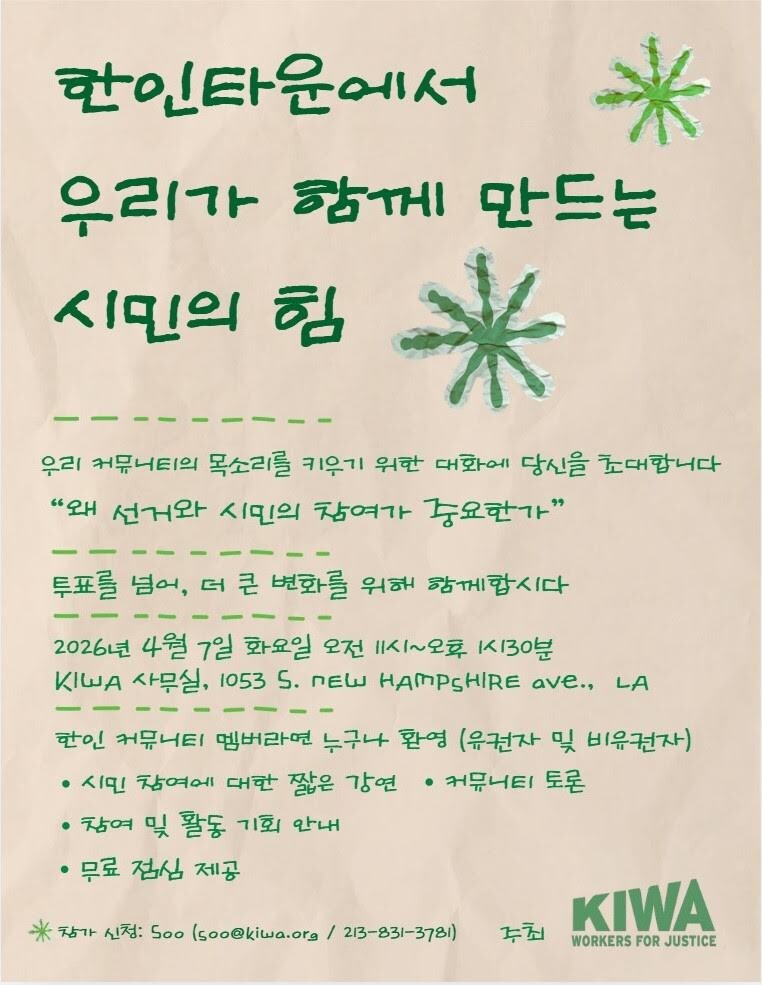 한인타운에서
우리가 함께 만드는
시민의 힘
우리 커뮤니티의 목소리를 키우기 위한 대화에 당신을 초대합니다
“왜 선거와 시민의 참여가 중요한가”
투표를 넘어, 더 큰 변화를 위해 함께합시다
2026년 4월 7일 화요일 오전 11시~오후 1시30분
KIWA 사무실, 1053 S. NEW HAMPSHIRE ave., LA
한인 커뮤니티 멤버라면 누구나 환영 (유권자 및 비유권자)
• 시민 참여에 대한 짧은 강연 • 커뮤니티 토론
• 참여 및 활동 기회 안내
• 무료 점심 제공
참가 신청: Soo (soo@kiwa.org / 213-831-3781) 주최
KIWA
WORKERS FOR JUSTICE